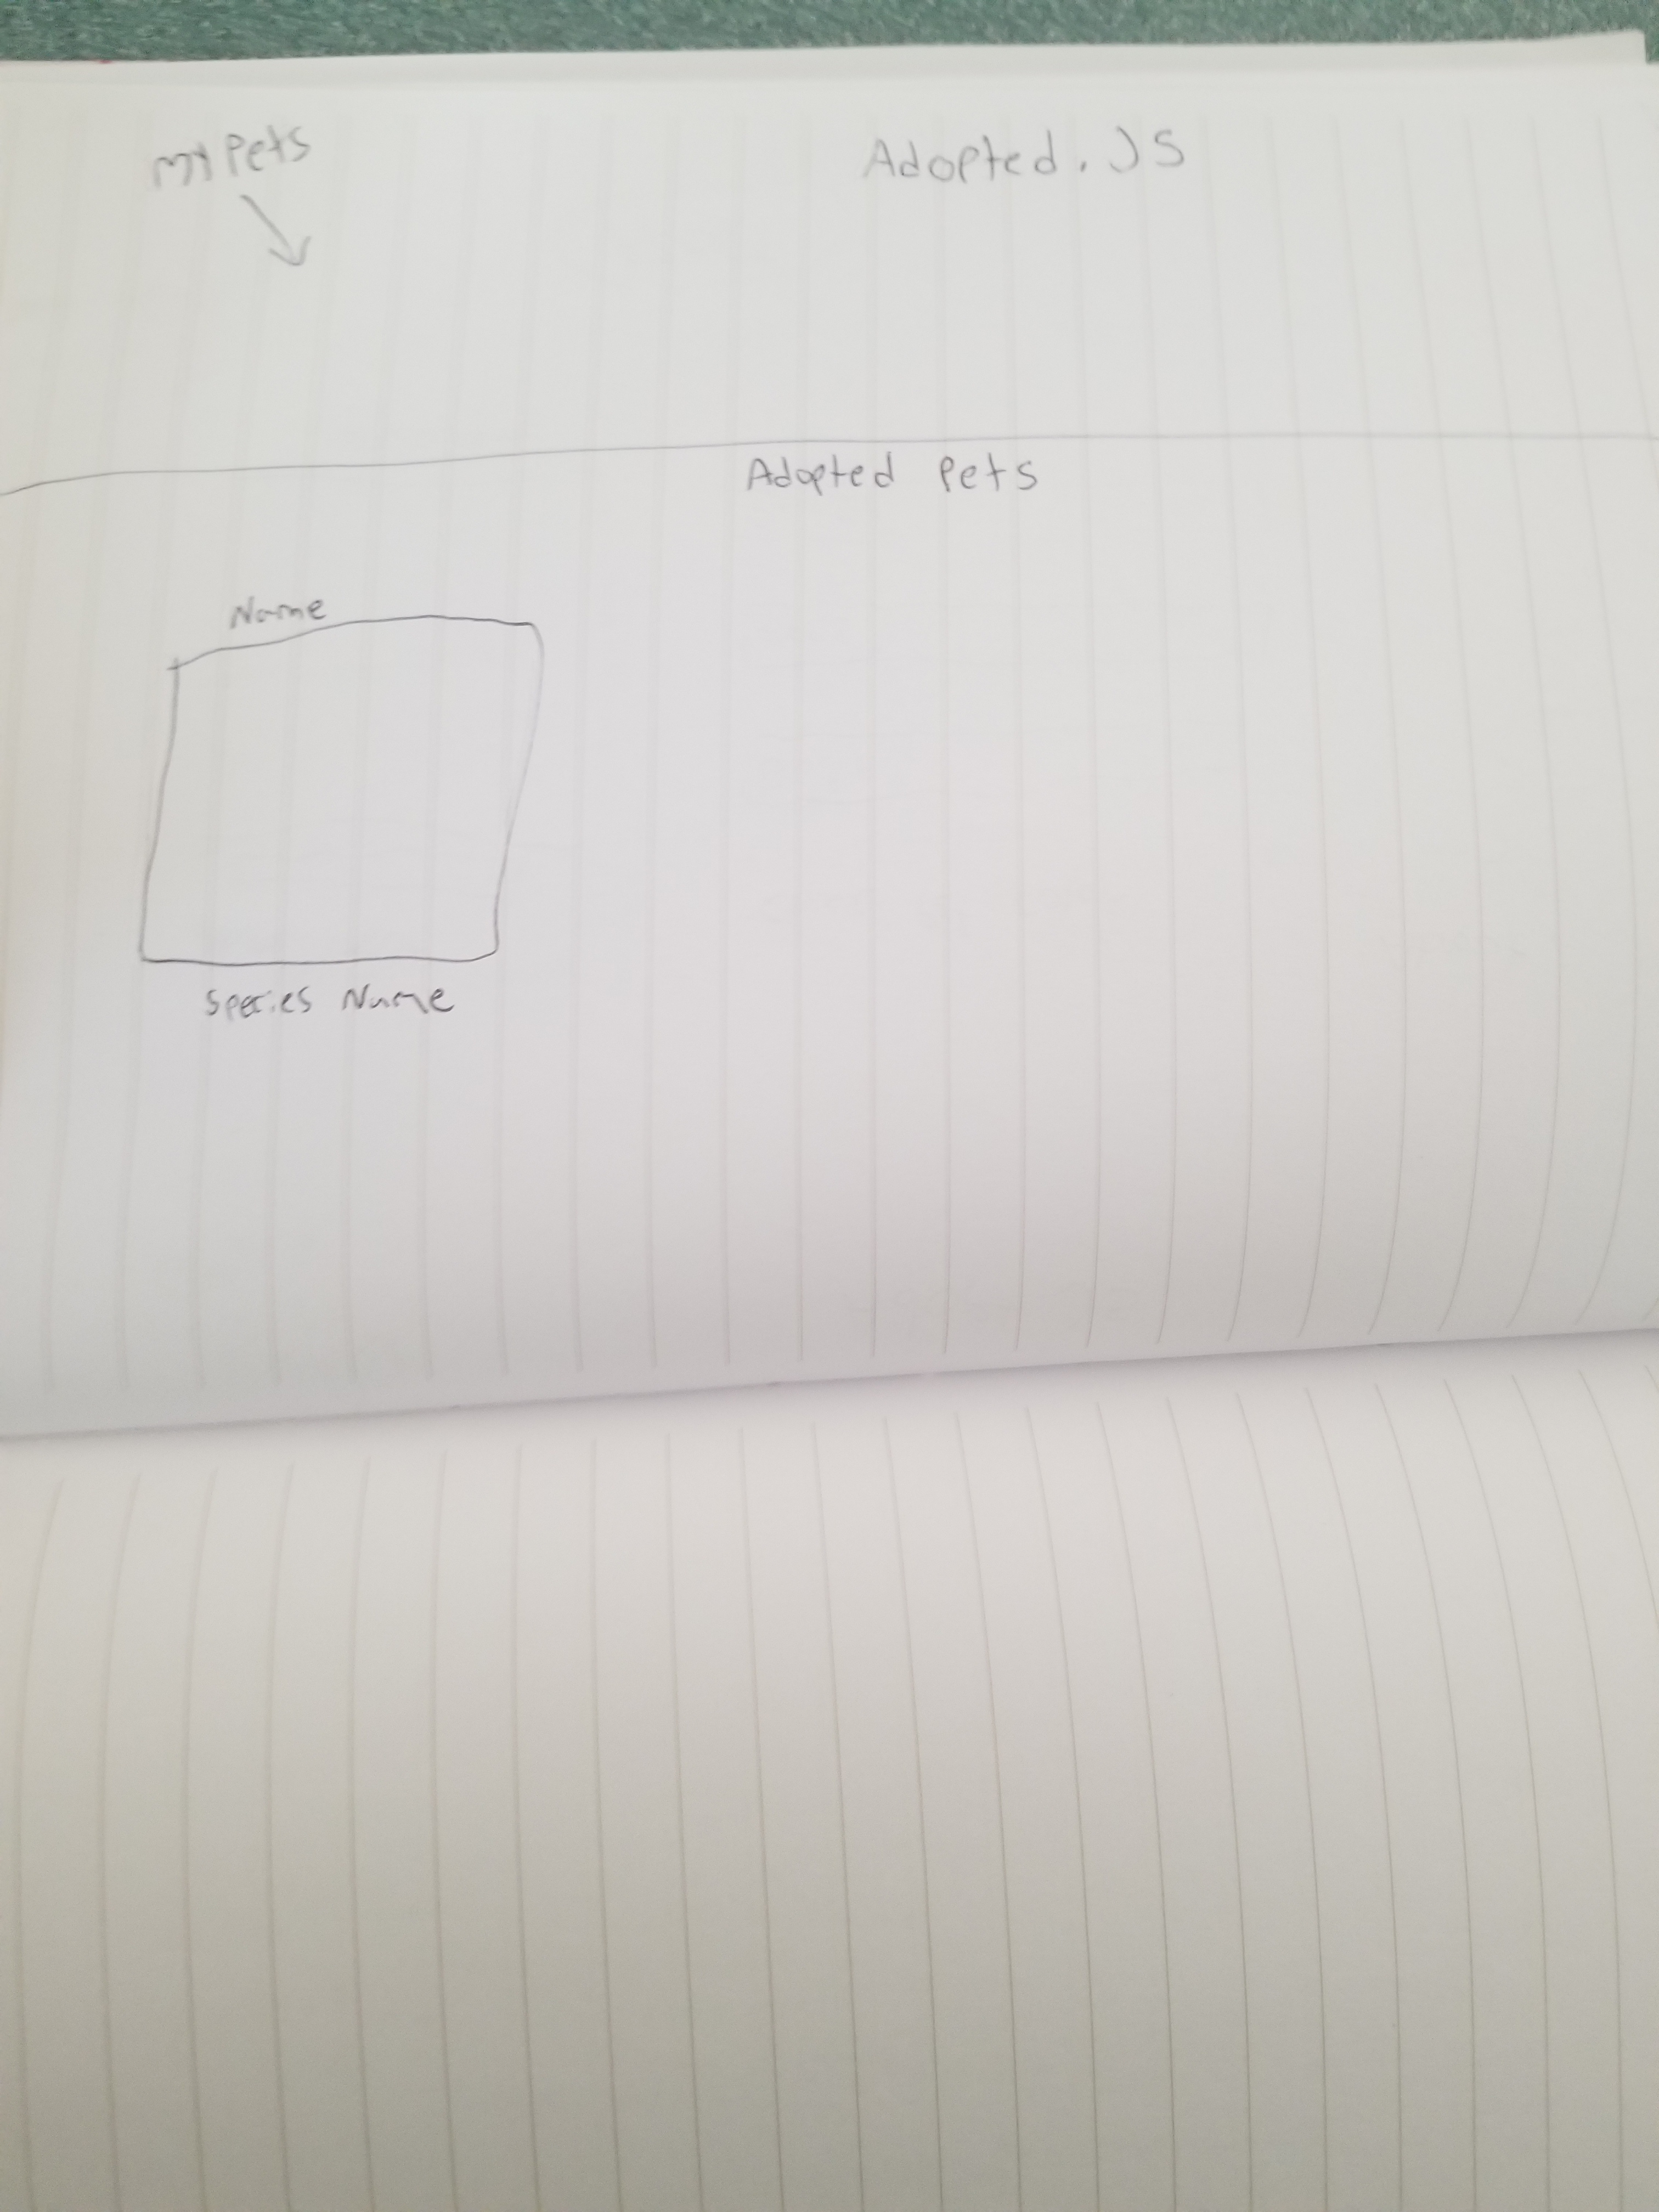 My Pets
Adopted.JS
Adopted Pets
Name
Species Name